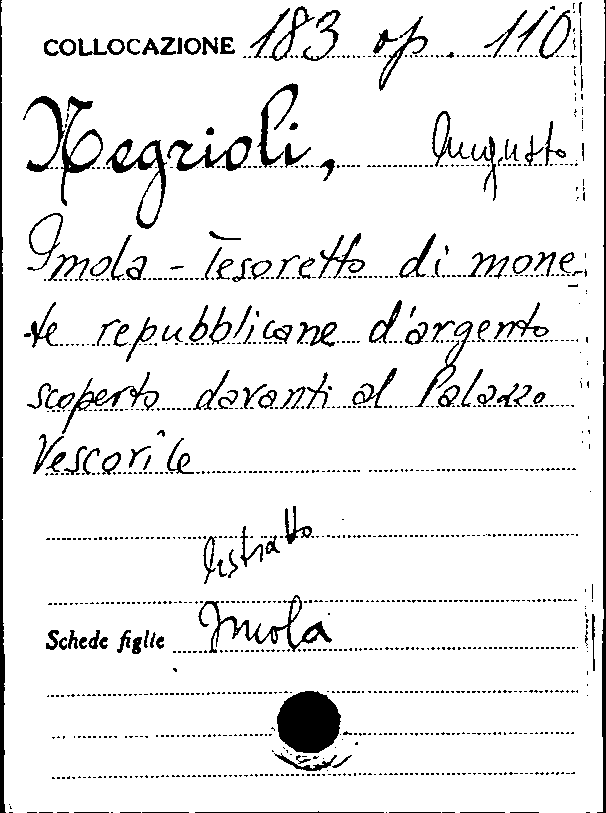 COLLOCAZIONE 183 op. 110
Negrioli, Augusto
Imola - Tesoretto di mone
te repubblicane d'argento
scoperto davanti al Palazzo
Vescovile
Estratto
Schede figlie Imola